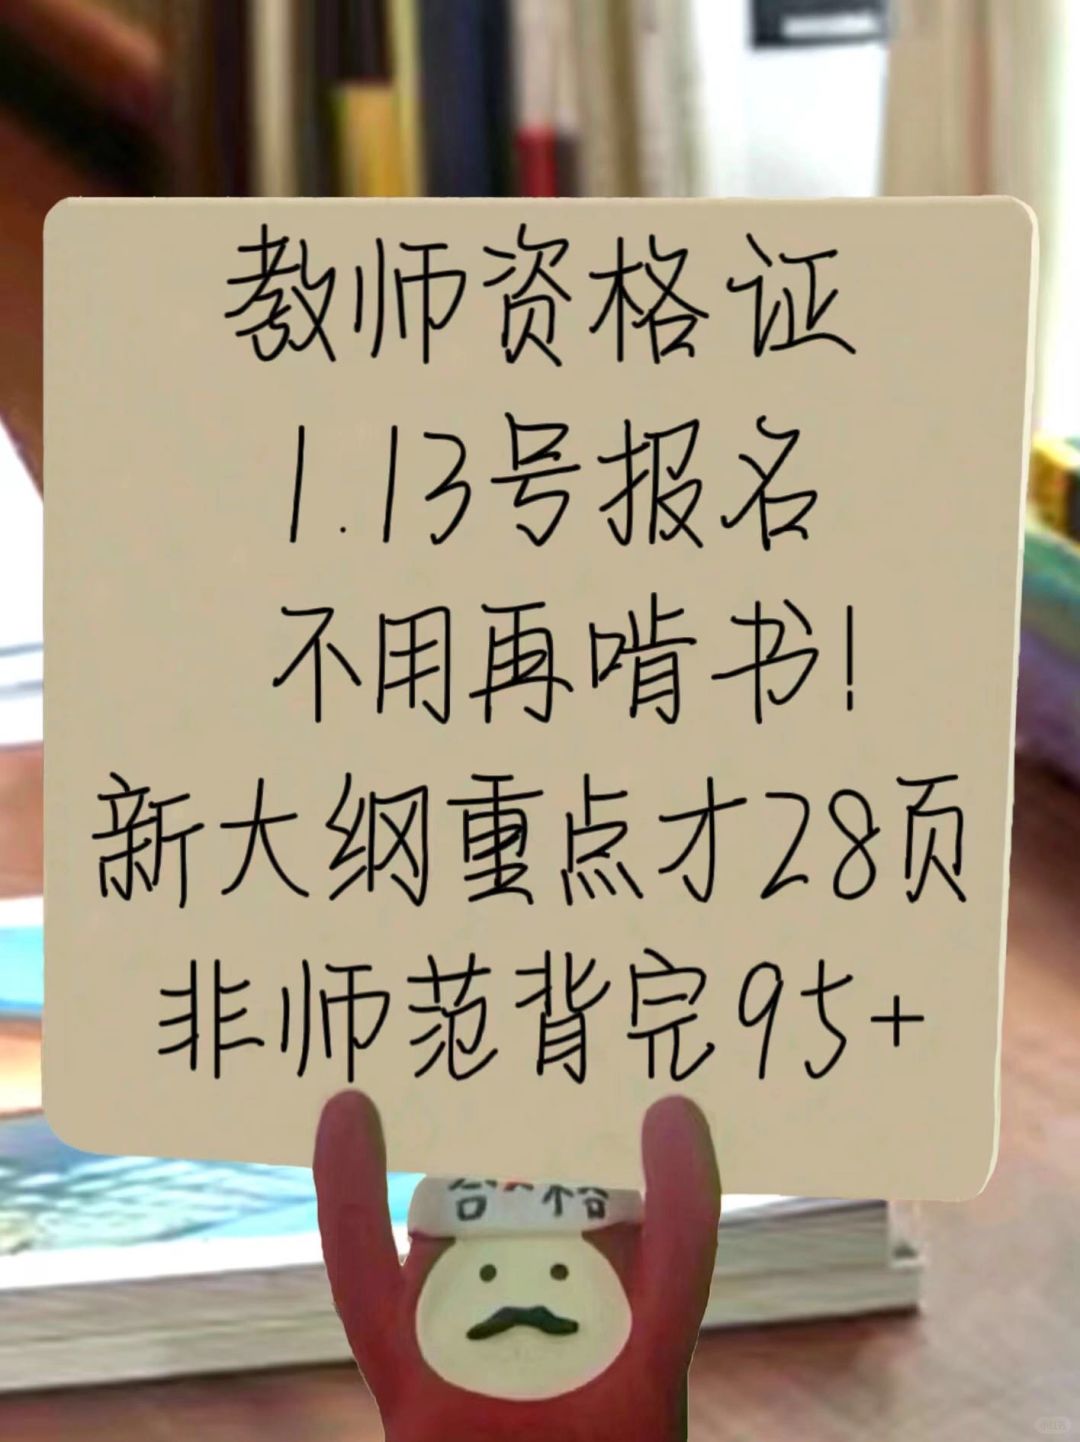 教师资格证
1.13号报名
不用再啃书!
新大纲重点才28页
非师范背完95+
合格